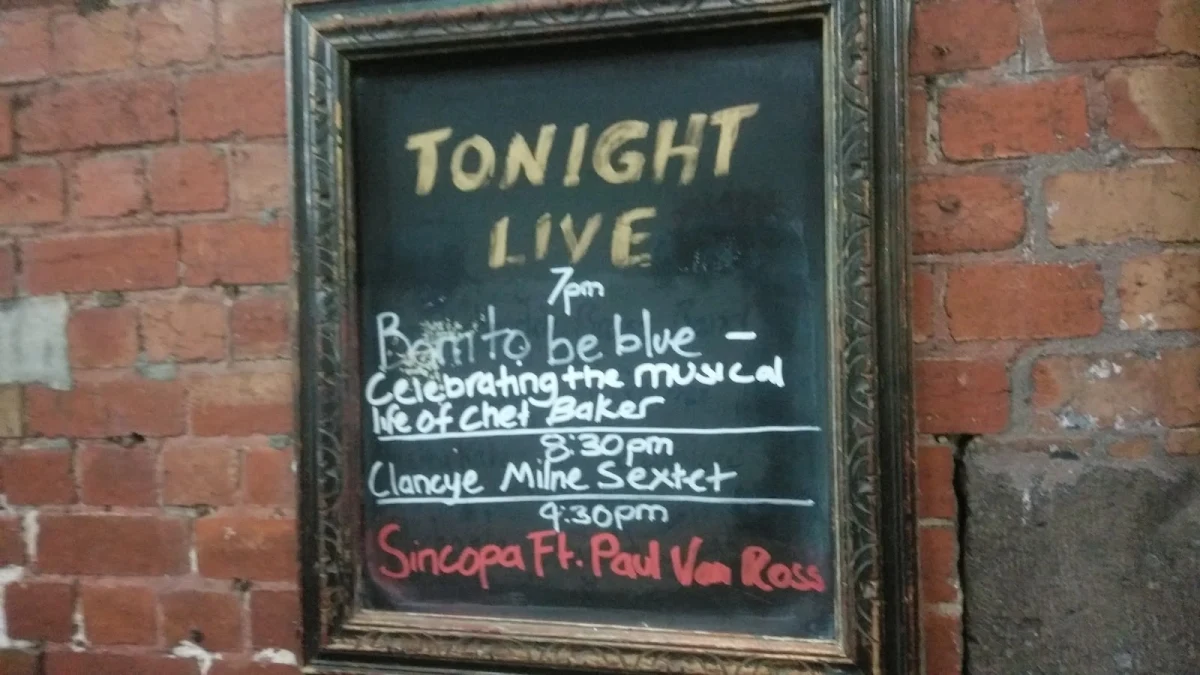 TONIGHT
LIVE
7pm
Born to be blue -
Celebrating the musical
life of Chet Baker
8:30pm
Clancye Milne Sextet
9:30pm
Sincopa Ft. Paul Van Ross